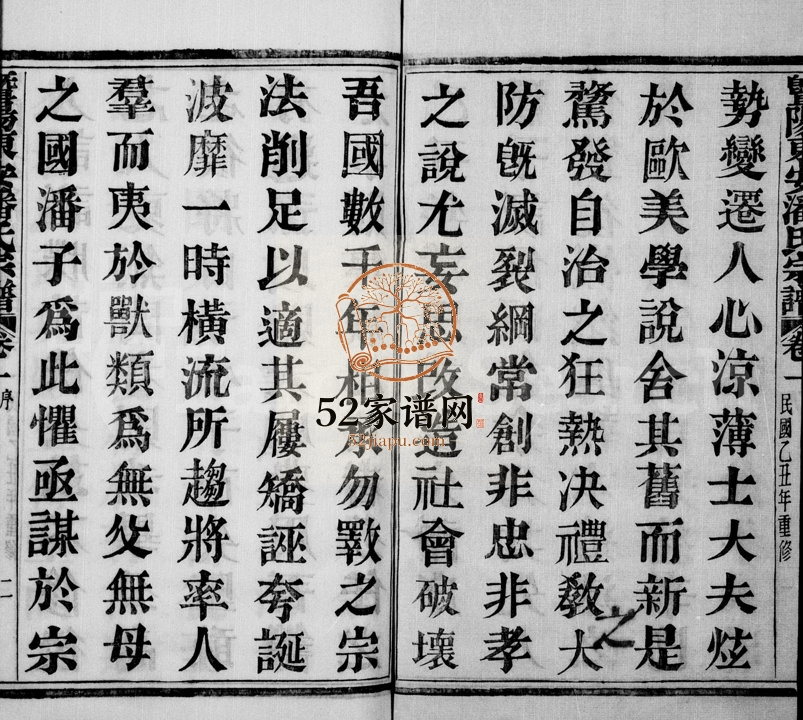 暨陽東安潘氏宗譜
卷一
民國乙丑年重修
勢變遷人心涼薄士大夫炫
於歐美學說舍其舊而新是
騖發自治之狂熱決禮敎大
之
防旣滅裂綱常創非忠非孝
之說尤妄思改造社會破壞
吾國數千年相承勿斁之宗
法削足以適其屨矯誣夸誕
波靡一時橫流所趨將率人
羣而夷於獸類爲無父無母
之國潘子爲此懼亟謀於宗
暨陽東安潘氏宗譜
卷一
序
二
52家谱网
52jiapu.com